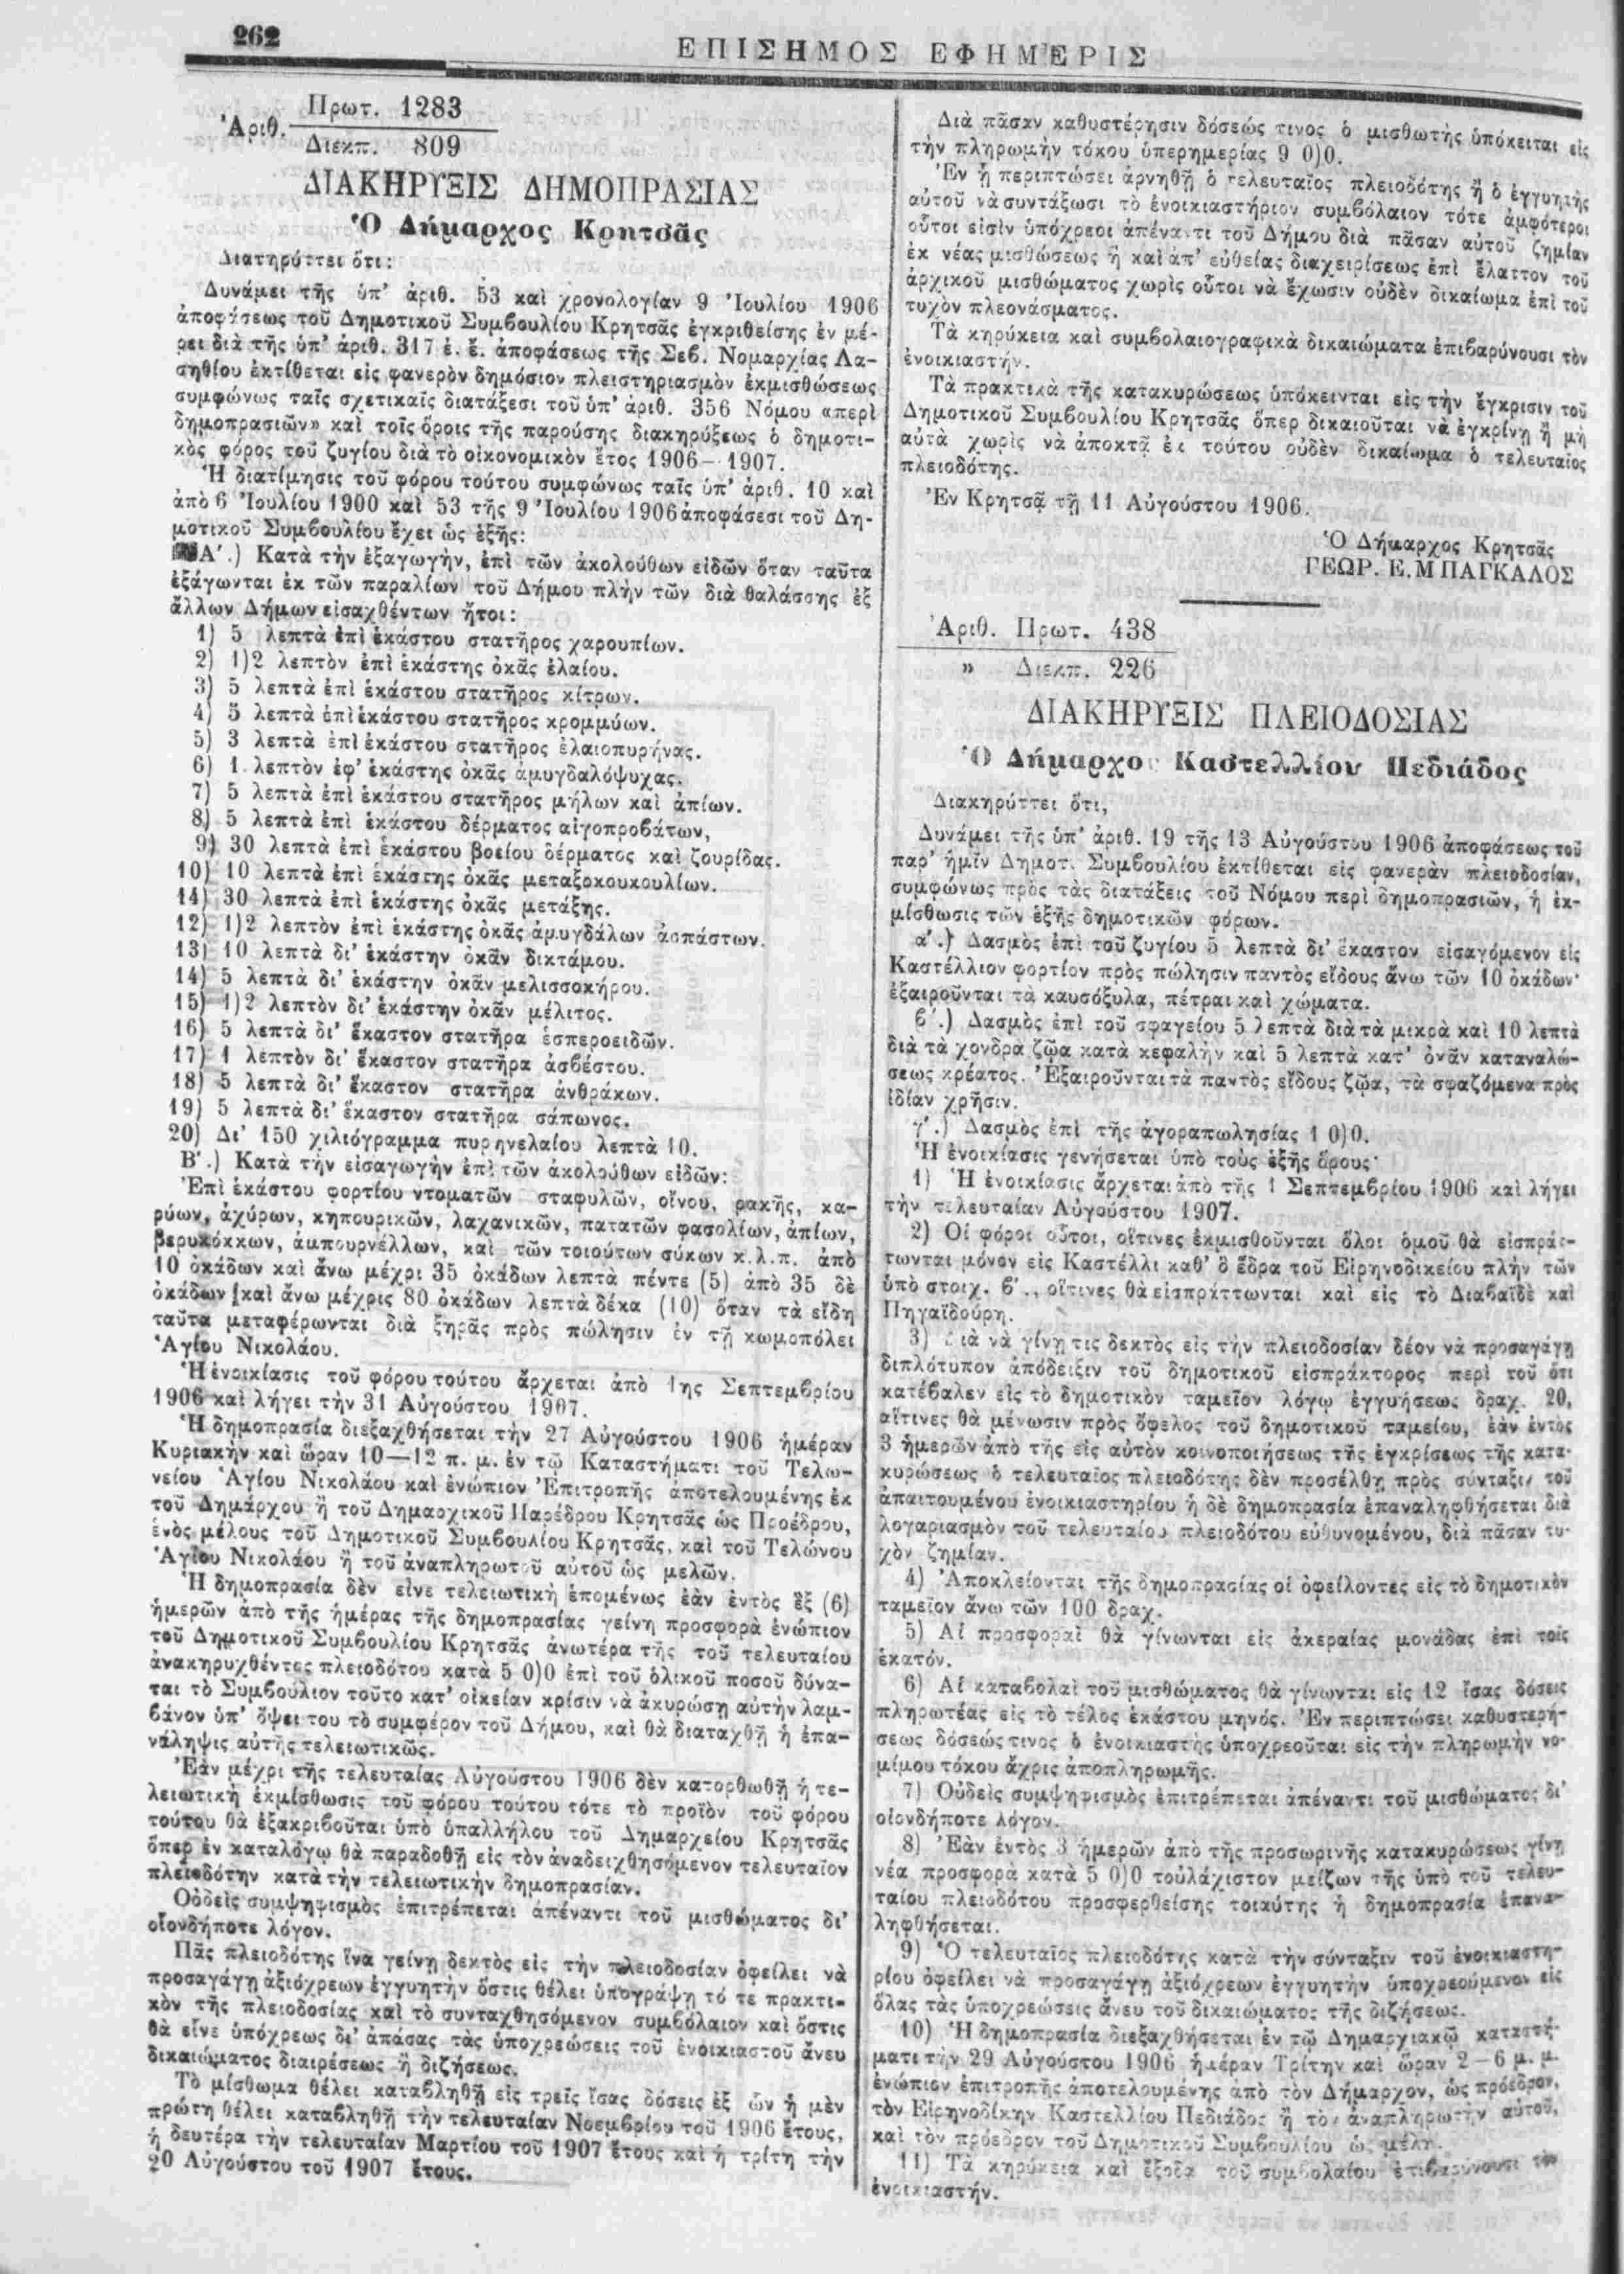 262
ΕΠΙΣΗΜΟΣ ΕΦΗΜΕΡΙΣ
Ἀριθ. Πρωτ. 1283
Διεκπ. 809
ΔΙΑΚΗΡΥΞΙΣ ΔΗΜΟΠΡΑΣΙΑΣ
Ὁ Δήμαρχος Κρητσᾶς
Διατηρύττει ὅτι:
Δυνάμει τῆς ὑπ' ἀριθ. 53 καὶ χρονολογίαν 9 Ἰουλίου 1906
ἀποφάσεως τοῦ Δημοτικοῦ Συμβουλίου Κρητσᾶς ἐγκριθείσης ἐν μέ-
ρει διὰ τῆς ὑπ' ἀριθ. 317 ἐ. ἔ. ἀποφάσεως τῆς Σεβ. Νομαρχίας Λα-
σηθίου ἐκτίθεται εἰς φανερὸν δημόσιον πλειστηριασμὸν ἐκμισθώσεως
συμφώνως ταῖς σχετικαῖς διατάξεσι τοῦ ὑπ' ἀριθ. 356 Νόμου «περὶ
δημοπρασιῶν» καὶ τοῖς ὅροις τῆς παρούσης διακηρύξεως ὁ δημοτι-
κὸς φόρος τοῦ ζυγίου διὰ τὸ οἰκονομικὸν ἔτος 1906—1907.
Ἡ διατίμησις τοῦ φόρου τούτου συμφώνως ταῖς ὑπ' ἀριθ. 10 καὶ
ἀπὸ 6 Ἰουλίου 1900 καὶ 53 τῆς 9 Ἰουλίου 1906 ἀποφάσεσι τοῦ Δη-
μοτικοῦ Συμβουλίου ἔχει ὡς ἑξῆς:
Α΄.) Κατὰ τὴν ἐξαγωγὴν, ἐπὶ τῶν ἀκολούθων εἰδῶν ὅταν ταῦτα
ἐξάγωνται ἐκ τῶν παραλίων τοῦ Δήμου πλὴν τῶν διὰ θαλάσσης ἐξ
ἄλλων Δήμων εἰσαχθέντων ἤτοι:
1) 5 λεπτὰ ἐπὶ ἑκάστου στατῆρος χαρουπίων.
2) 1)2 λεπτὸν ἐπὶ ἑκάστης ὀκᾶς ἐλαίου.
3) 5 λεπτὰ ἐπὶ ἑκάστου στατῆρος κίτρων.
4) 5 λεπτὰ ἐπὶ ἑκάστου στατῆρος κρομμύων.
5) 3 λεπτὰ ἐπὶ ἑκάστου στατῆρος ἐλαιοπυρήνας.
6) 1 λεπτὸν ἐφ' ἑκάστης ὀκᾶς ἀμυγδαλόψυχας.
7) 5 λεπτὰ ἐπὶ ἑκάστου στατῆρος μήλων καὶ ἀπίων.
8) 5 λεπτὰ ἐπὶ ἑκάστου δέρματος αἰγοπροβάτων,
9) 30 λεπτὰ ἐπὶ ἑκάστου βοείου δέρματος καὶ ζουρίδας.
10) 10 λεπτὰ ἐπὶ ἑκάστης ὀκᾶς μεταξοκουκουλίων.
14) 30 λεπτὰ ἐπὶ ἑκάστης ὀκᾶς μετάξης.
12) 1)2 λεπτὸν ἐπὶ ἑκάστης ὀκᾶς ἀμυγδάλων ἀσπάστων.
13) 10 λεπτὰ δι' ἑκάστην ὀκᾶν δικτάμου.
14) 5 λεπτὰ δι' ἑκάστην ὀκᾶν μελισσοκήρου.
15) 1)2 λεπτὸν δι' ἑκάστην ὀκᾶν μέλιτος.
16) 5 λεπτὰ δι' ἕκαστον στατῆρα ἑσπεροειδῶν.
17) 1 λεπτὸν δι' ἕκαστον στατῆρα ἀσβέστου.
18) 5 λεπτὰ δι' ἕκαστον στατῆρα ἀνθράκων.
19) 5 λεπτὰ δι' ἕκαστον στατῆρα σάπωνος.
20) Δι' 150 χιλιόγραμμα πυρηνελαίου λεπτὰ 10.
Β΄.) Κατὰ τὴν εἰσαγωγὴν ἐπὶ τῶν ἀκολούθων εἰδῶν:
Ἐπὶ ἑκάστου φορτίου ντοματῶν σταφυλῶν, οἴνου, ρακῆς, κα-
ρύων, ἀχύρων, κηπουρικῶν, λαχανικῶν, πατατῶν φασολίων, ἀπίων,
βερυκόκκων, ἀμπουρνέλλων, καὶ τῶν τοιούτων σύκων κ.λ.π. ἀπὸ
10 ὀκάδων καὶ ἄνω μέχρι 35 ὀκάδων λεπτὰ πέντε (5) ἀπὸ 35 δὲ
ὀκάδων καὶ ἄνω μέχρις 80 ὀκάδων λεπτὰ δέκα (10) ὅταν τὰ εἴδη
ταῦτα μεταφέρωνται διὰ ξηρᾶς πρὸς πώλησιν ἐν τῇ κωμοπόλει
Ἁγίου Νικολάου.
Ἡ ἐνοικίασις τοῦ φόρου τούτου ἄρχεται ἀπὸ 1ης Σεπτεμβρίου
1906 καὶ λήγει τὴν 31 Αὐγούστου 1907.
Ἡ δημοπρασία διεξαχθήσεται τὴν 27 Αὐγούστου 1906 ἡμέραν
Κυριακὴν καὶ ὥραν 10—12 π. μ. ἐν τῷ Καταστήματι τοῦ Τελω-
νείου Ἁγίου Νικολάου καὶ ἐνώπιον Ἐπιτροπῆς ἀποτελουμένης ἐκ
τοῦ Δημάρχου ἢ τοῦ Δημαρχικοῦ Παρέδρου Κρητσᾶς ὡς Προέδρου,
ἑνὸς μέλους τοῦ Δημοτικοῦ Συμβουλίου Κρητσᾶς, καὶ τοῦ Τελώνου
Ἁγίου Νικολάου ἢ τοῦ ἀναπληρωτοῦ αὐτοῦ ὡς μελῶν.
Ἡ δημοπρασία δὲν εἶνε τελειωτικὴ ἑπομένως ἐὰν ἐντὸς ἓξ (6)
ἡμερῶν ἀπὸ τῆς ἡμέρας τῆς δημοπρασίας γείνῃ προσφορὰ ἐνώπιον
τοῦ Δημοτικοῦ Συμβουλίου Κρητσᾶς ἀνωτέρα τῆς τοῦ τελευταίου
ἀνακηρυχθέντος πλειοδότου κατὰ 5 0)0 ἐπὶ τοῦ ὁλικοῦ ποσοῦ δύνα-
ται τὸ Συμβούλιον τοῦτο κατ' οἰκείαν κρίσιν νὰ ἀκυρώσῃ αὐτὴν λαμ-
βάνον ὑπ' ὄψει του τὸ συμφέρον τοῦ Δήμου, καὶ θὰ διαταχθῇ ἡ ἐπα-
νάληψις αὐτῆς τελειωτικῶς.
Ἐὰν μέχρι τῆς τελευταίας Αὐγούστου 1906 δὲν κατορθωθῇ ἡ τε-
λειωτικὴ ἐκμίσθωσις τοῦ φόρου τούτου τότε τὸ προϊὸν τοῦ φόρου
τούτου θὰ ἐξακριβοῦται ὑπὸ ὑπαλλήλου τοῦ Δημαρχείου Κρητσᾶς
ὅπερ ἐν καταλόγῳ θὰ παραδοθῇ εἰς τὸν ἀναδειχθησόμενον τελευταῖον
πλειοδότην κατὰ τὴν τελειωτικὴν δημοπρασίαν.
Οὐδεὶς συμψηφισμὸς ἐπιτρέπεται ἀπέναντι τοῦ μισθώματος δι'
οἱονδήποτε λόγον.
Πᾶς πλειοδότης ἵνα γείνῃ δεκτὸς εἰς τὴν πλειοδοσίαν ὀφείλει νὰ
προσαγάγῃ ἀξιόχρεων ἐγγυητὴν ὅστις θέλει ὑπογράψῃ τό τε πρακτι-
κὸν τῆς πλειοδοσίας καὶ τὸ συνταχθησόμενον συμβόλαιον καὶ ὅστις
θὰ εἶνε ὑπόχρεως δι' ἁπάσας τὰς ὑποχρεώσεις τοῦ ἐνοικιαστοῦ ἄνευ
δικαιώματος διαιρέσεως ἢ διζήσεως.
Τὸ μίσθωμα θέλει καταβληθῇ εἰς τρεῖς ἴσας δόσεις ἐξ ὧν ἡ μὲν
πρώτη θέλει καταβληθῇ τὴν τελευταίαν Νοεμβρίου τοῦ 1906 ἔτους,
ἡ δευτέρα τὴν τελευταίαν Μαρτίου τοῦ 1907 ἔτους καὶ ἡ τρίτη τὴν
20 Αὐγούστου τοῦ 1907 ἔτους.
Διὰ πᾶσαν καθυστέρησιν δόσεώς τινος ὁ μισθωτὴς ὑπόκειται εἰς
τὴν πληρωμὴν τόκου ὑπερημερίας 9 0)0.
Ἐν ᾗ περιπτώσει ἀρνηθῇ ὁ τελευταῖος πλειοδότης ἢ ὁ ἐγγυητὴς
αὐτοῦ νὰ συντάξωσι τὸ ἐνοικιαστήριον συμβόλαιον τότε ἀμφότεροι
οὗτοι εἰσὶν ὑπόχρεοι ἀπέναντι τοῦ Δήμου διὰ πᾶσαν αὐτοῦ ζημίαν
ἐκ νέας μισθώσεως ἢ καὶ ἀπ' εὐθείας διαχειρίσεως ἐπὶ ἔλαττον τοῦ
ἀρχικοῦ μισθώματος χωρὶς οὗτοι νὰ ἔχωσιν οὐδὲν δικαίωμα ἐπὶ τοῦ
τυχὸν πλεονάσματος.
Τὰ κηρύκεια καὶ συμβολαιογραφικὰ δικαιώματα ἐπιβαρύνουσι τὸν
ἐνοικιαστήν.
Τὰ πρακτικὰ τῆς κατακυρώσεως ὑπόκεινται εἰς τὴν ἔγκρισιν τοῦ
Δημοτικοῦ Συμβουλίου Κρητσᾶς ὅπερ δικαιοῦται νὰ ἐγκρίνῃ ἢ μὴ
αὐτὰ χωρὶς νὰ ἀποκτᾷ ἐκ τούτου οὐδὲν δικαίωμα ὁ τελευταῖος
πλειοδότης.
Ἐν Κρητσᾷ τῇ 11 Αὐγούστου 1906.
Ὁ Δήμαρχος Κρητσᾶς
ΓΕΩΡ. Ε. ΜΠΑΓΚΑΛΟΣ
Ἀριθ. Πρωτ. 438
» Διεκπ. 226
ΔΙΑΚΗΡΥΞΙΣ ΠΛΕΙΟΔΟΣΙΑΣ
Ὁ Δήμαρχο Καστελλίου Πεδιάδος
Διακηρύττει ὅτι,
Δυνάμει τῆς ὑπ' ἀριθ. 19 τῆς 13 Αὐγούστου 1906 ἀποφάσεως τοῦ
παρ' ἡμῖν Δημοτ. Συμβουλίου ἐκτίθεται εἰς φανερὰν πλειοδοσίαν,
συμφώνως πρὸς τὰς διατάξεις τοῦ Νόμου περὶ δημοπρασιῶν, ἡ ἐκ-
μίσθωσις τῶν ἑξῆς δημοτικῶν φόρων.
α΄.) Δασμὸς ἐπὶ τοῦ ζυγίου 5 λεπτὰ δι' ἕκαστον εἰσαγόμενον εἰς
Καστέλλιον φορτίον πρὸς πώλησιν παντὸς εἴδους ἄνω τῶν 10 ὀκάδων·
ἐξαιροῦνται τὰ καυσόξυλα, πέτραι καὶ χώματα.
β΄.) Δασμὸς ἐπὶ τοῦ σφαγείου 5 λεπτὰ διὰ τὰ μικρὰ καὶ 10 λεπτὰ
διὰ τὰ χονδρὰ ζῷα κατὰ κεφαλὴν καὶ 5 λεπτὰ κατ' ὀκᾶν καταναλώ-
σεως κρέατος. Ἐξαιροῦνται τὰ παντὸς εἴδους ζῷα, τὰ σφαζόμενα πρὸς
ἰδίαν χρῆσιν.
γ΄.) Δασμὸς ἐπὶ τῆς ἀγοραπωλησίας 1 0)0.
Ἡ ἐνοικίασις γενήσεται ὑπὸ τοὺς ἑξῆς ὅρους·
1) Ἡ ἐνοικίασις ἄρχεται ἀπὸ τῆς 1 Σεπτεμβρίου 1906 καὶ λήγει
τὴν τελευταίαν Αὐγούστου 1907.
2) Οἱ φόροι οὗτοι, οἵτινες ἐκμισθοῦνται ὅλοι ὁμοῦ θὰ εἰσπράτ-
τωνται μόνον εἰς Καστέλλι καθ' ὃ ἕδρα τοῦ Εἰρηνοδικείου πλὴν τῶν
ὑπὸ στοιχ. β΄., οἵτινες θὰ εἰσπράττωνται καὶ εἰς τὸ Διαβαϊδὲ καὶ
Πηγαϊδούρη.
3) Διὰ νὰ γίνῃ τις δεκτὸς εἰς τὴν πλειοδοσίαν δέον νὰ προσαγάγῃ
διπλότυπον ἀπόδειξιν τοῦ δημοτικοῦ εἰσπράκτορος περὶ τοῦ ὅτι
κατέβαλεν εἰς τὸ δημοτικὸν ταμεῖον λόγῳ ἐγγυήσεως δραχ. 20,
αἵτινες θὰ μένωσιν πρὸς ὄφελος τοῦ δημοτικοῦ ταμείου, ἐὰν ἐντὸς
3 ἡμερῶν ἀπὸ τῆς εἰς αὐτὸν κοινοποιήσεως τῆς ἐγκρίσεως τῆς κατα-
κυρώσεως ὁ τελευταῖος πλειοδότης δὲν προσέλθῃ πρὸς σύνταξιν τοῦ
ἀπαιτουμένου ἐνοικιαστηρίου ἡ δὲ δημοπρασία ἐπαναληφθήσεται διὰ
λογαριασμὸν τοῦ τελευταίου πλειοδότου εὐθυνομένου, διὰ πᾶσαν τυ-
χὸν ζημίαν.
4) Ἀποκλείονται τῆς δημοπρασίας οἱ ὀφείλοντες εἰς τὸ δημοτικὸν
ταμεῖον ἄνω τῶν 100 δραχ.
5) Αἱ προσφοραὶ θὰ γίνωνται εἰς ἀκεραίας μονάδας ἐπὶ τοῖς
ἑκατόν.
6) Αἱ καταβολαὶ τοῦ μισθώματος θὰ γίνωνται εἰς 12 ἴσας δόσεις
πληρωτέας εἰς τὸ τέλος ἑκάστου μηνός. Ἐν περιπτώσει καθυστερή-
σεως δόσεώς τινος ὁ ἐνοικιαστὴς ὑποχρεοῦται εἰς τὴν πληρωμὴν νο-
μίμου τόκου ἄχρις ἀποπληρωμῆς.
7) Οὐδεὶς συμψηφισμὸς ἐπιτρέπεται ἀπέναντι τοῦ μισθώματος δι'
οἱονδήποτε λόγον.
8) Ἐὰν ἐντὸς 3 ἡμερῶν ἀπὸ τῆς προσωρινῆς κατακυρώσεως γίνῃ
νέα προσφορὰ κατὰ 5 0)0 τοὐλάχιστον μείζων τῆς ὑπὸ τοῦ τελευ-
ταίου πλειοδότου προσφερθείσης τοιαύτης ἡ δημοπρασία ἐπανα-
ληφθήσεται.
9) Ὁ τελευταῖος πλειοδότης κατὰ τὴν σύνταξιν τοῦ ἐνοικιαστη-
ρίου ὀφείλει νὰ προσαγάγῃ ἀξιόχρεων ἐγγυητὴν ὑποχρεούμενον εἰς
ὅλας τὰς ὑποχρεώσεις ἄνευ τοῦ δικαιώματος τῆς διζήσεως.
10) Ἡ δημοπρασία διεξαχθήσεται ἐν τῷ Δημαρχιακῷ καταστή-
ματι τὴν 29 Αὐγούστου 1906 ἡμέραν Τρίτην καὶ ὥραν 2—6 μ. μ.
ἐνώπιον ἐπιτροπῆς ἀποτελουμένης ἀπὸ τὸν Δήμαρχον, ὡς πρόεδρον,
τὸν Εἰρηνοδίκην Καστελλίου Πεδιάδος ἢ τὸν ἀναπληρωτὴν αὐτοῦ,
καὶ τὸν πρόεδρον τοῦ Δημοτικοῦ Συμβουλίου ὡς μέλη.
11) Τὰ κηρύκεια καὶ ἔξοδα τοῦ συμβολαίου ἐπιβαρύνουσι τὸν
ἐνοικιαστήν.